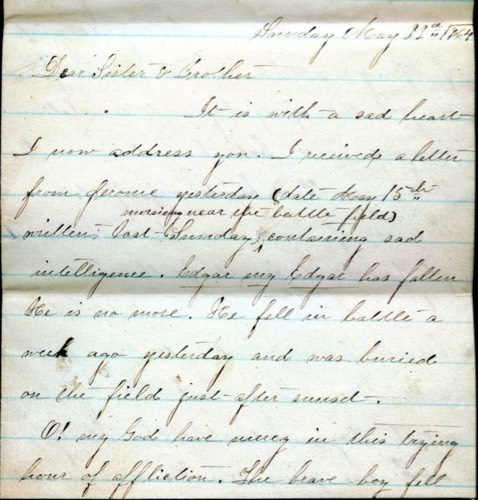 Sunday May 22d 1864
Dear Sister & Brother
It is with a sad heart
I now address you. I received a letter
from Jerome yesterday (date May 15th
morning near the battle field)
written last Sunday containing sad
intelligence. Edgar my Edgar has fallen
He is no more. He fell in battle a
week ago yesterday and was buried
on the field just after sunset.
O! my God have mercy in this trying
hour of affliction. The brave boy fell